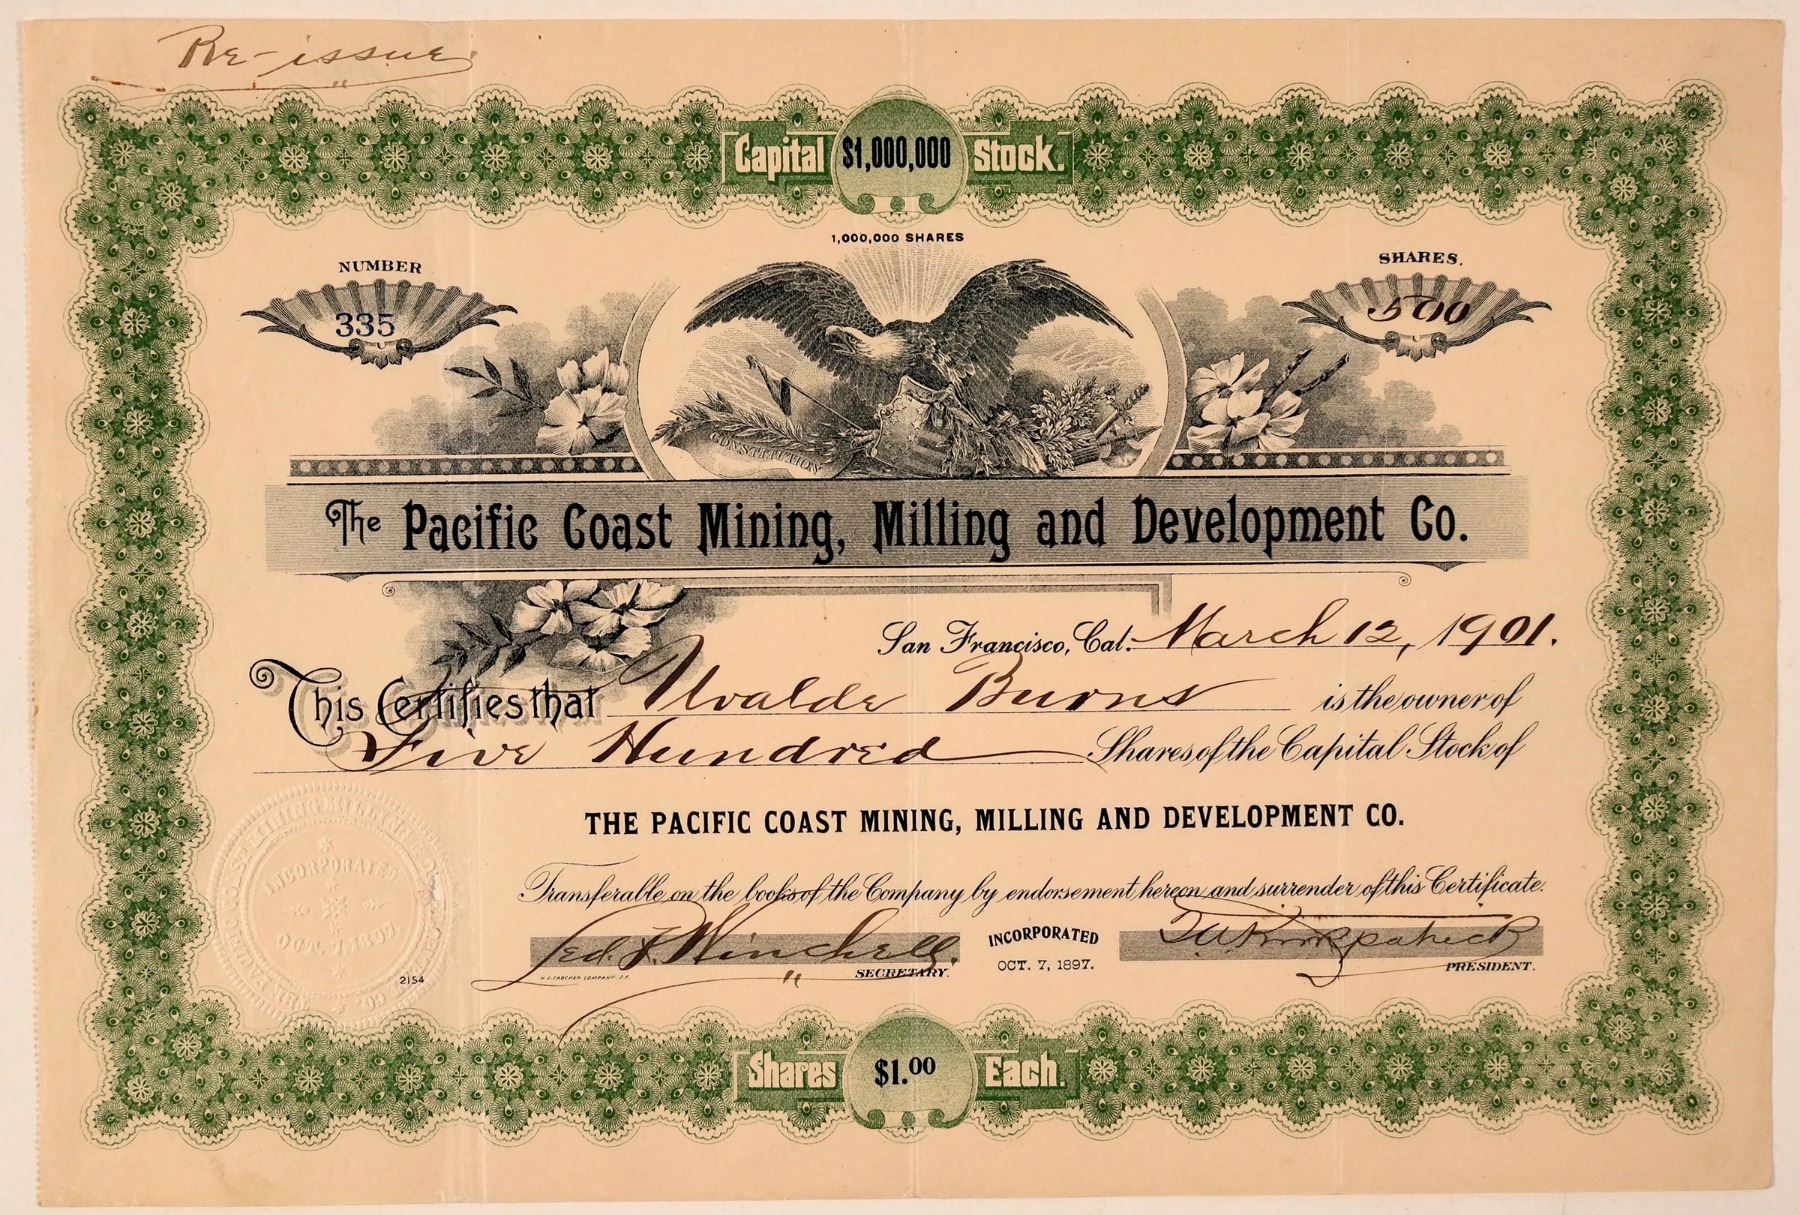 Re-issue
Capital $1,000,000 Stock.
1,000,000 SHARES
NUMBER
335
SHARES.
500
CONSTITUTION
The Pacific Coast Mining, Milling and Development Co.
San Francisco, Cal. March 12, 1901.
This Certifies that Uvalde Burns is the owner of
Five Hundred Shares of the Capital Stock of
THE PACIFIC COAST MINING, MILLING AND DEVELOPMENT CO.
Transferable on the books of the Company by endorsement hereon and surrender of this Certificate.
INCORPORATED
OCT. 7, 1897
2154
Winchell.
H.S. CROCKER COMPANY, S.F.
SECRETARY.
INCORPORATED
OCT. 7, 1897.
Kirkpatrick
PRESIDENT.
Shares $1.00 Each.